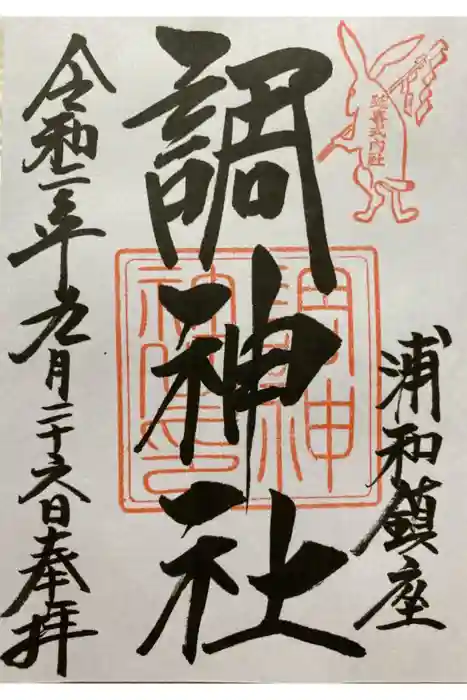 延喜式内社
浦和鎮座
調神社
調神社印
令和二年九月二十六日奉拝